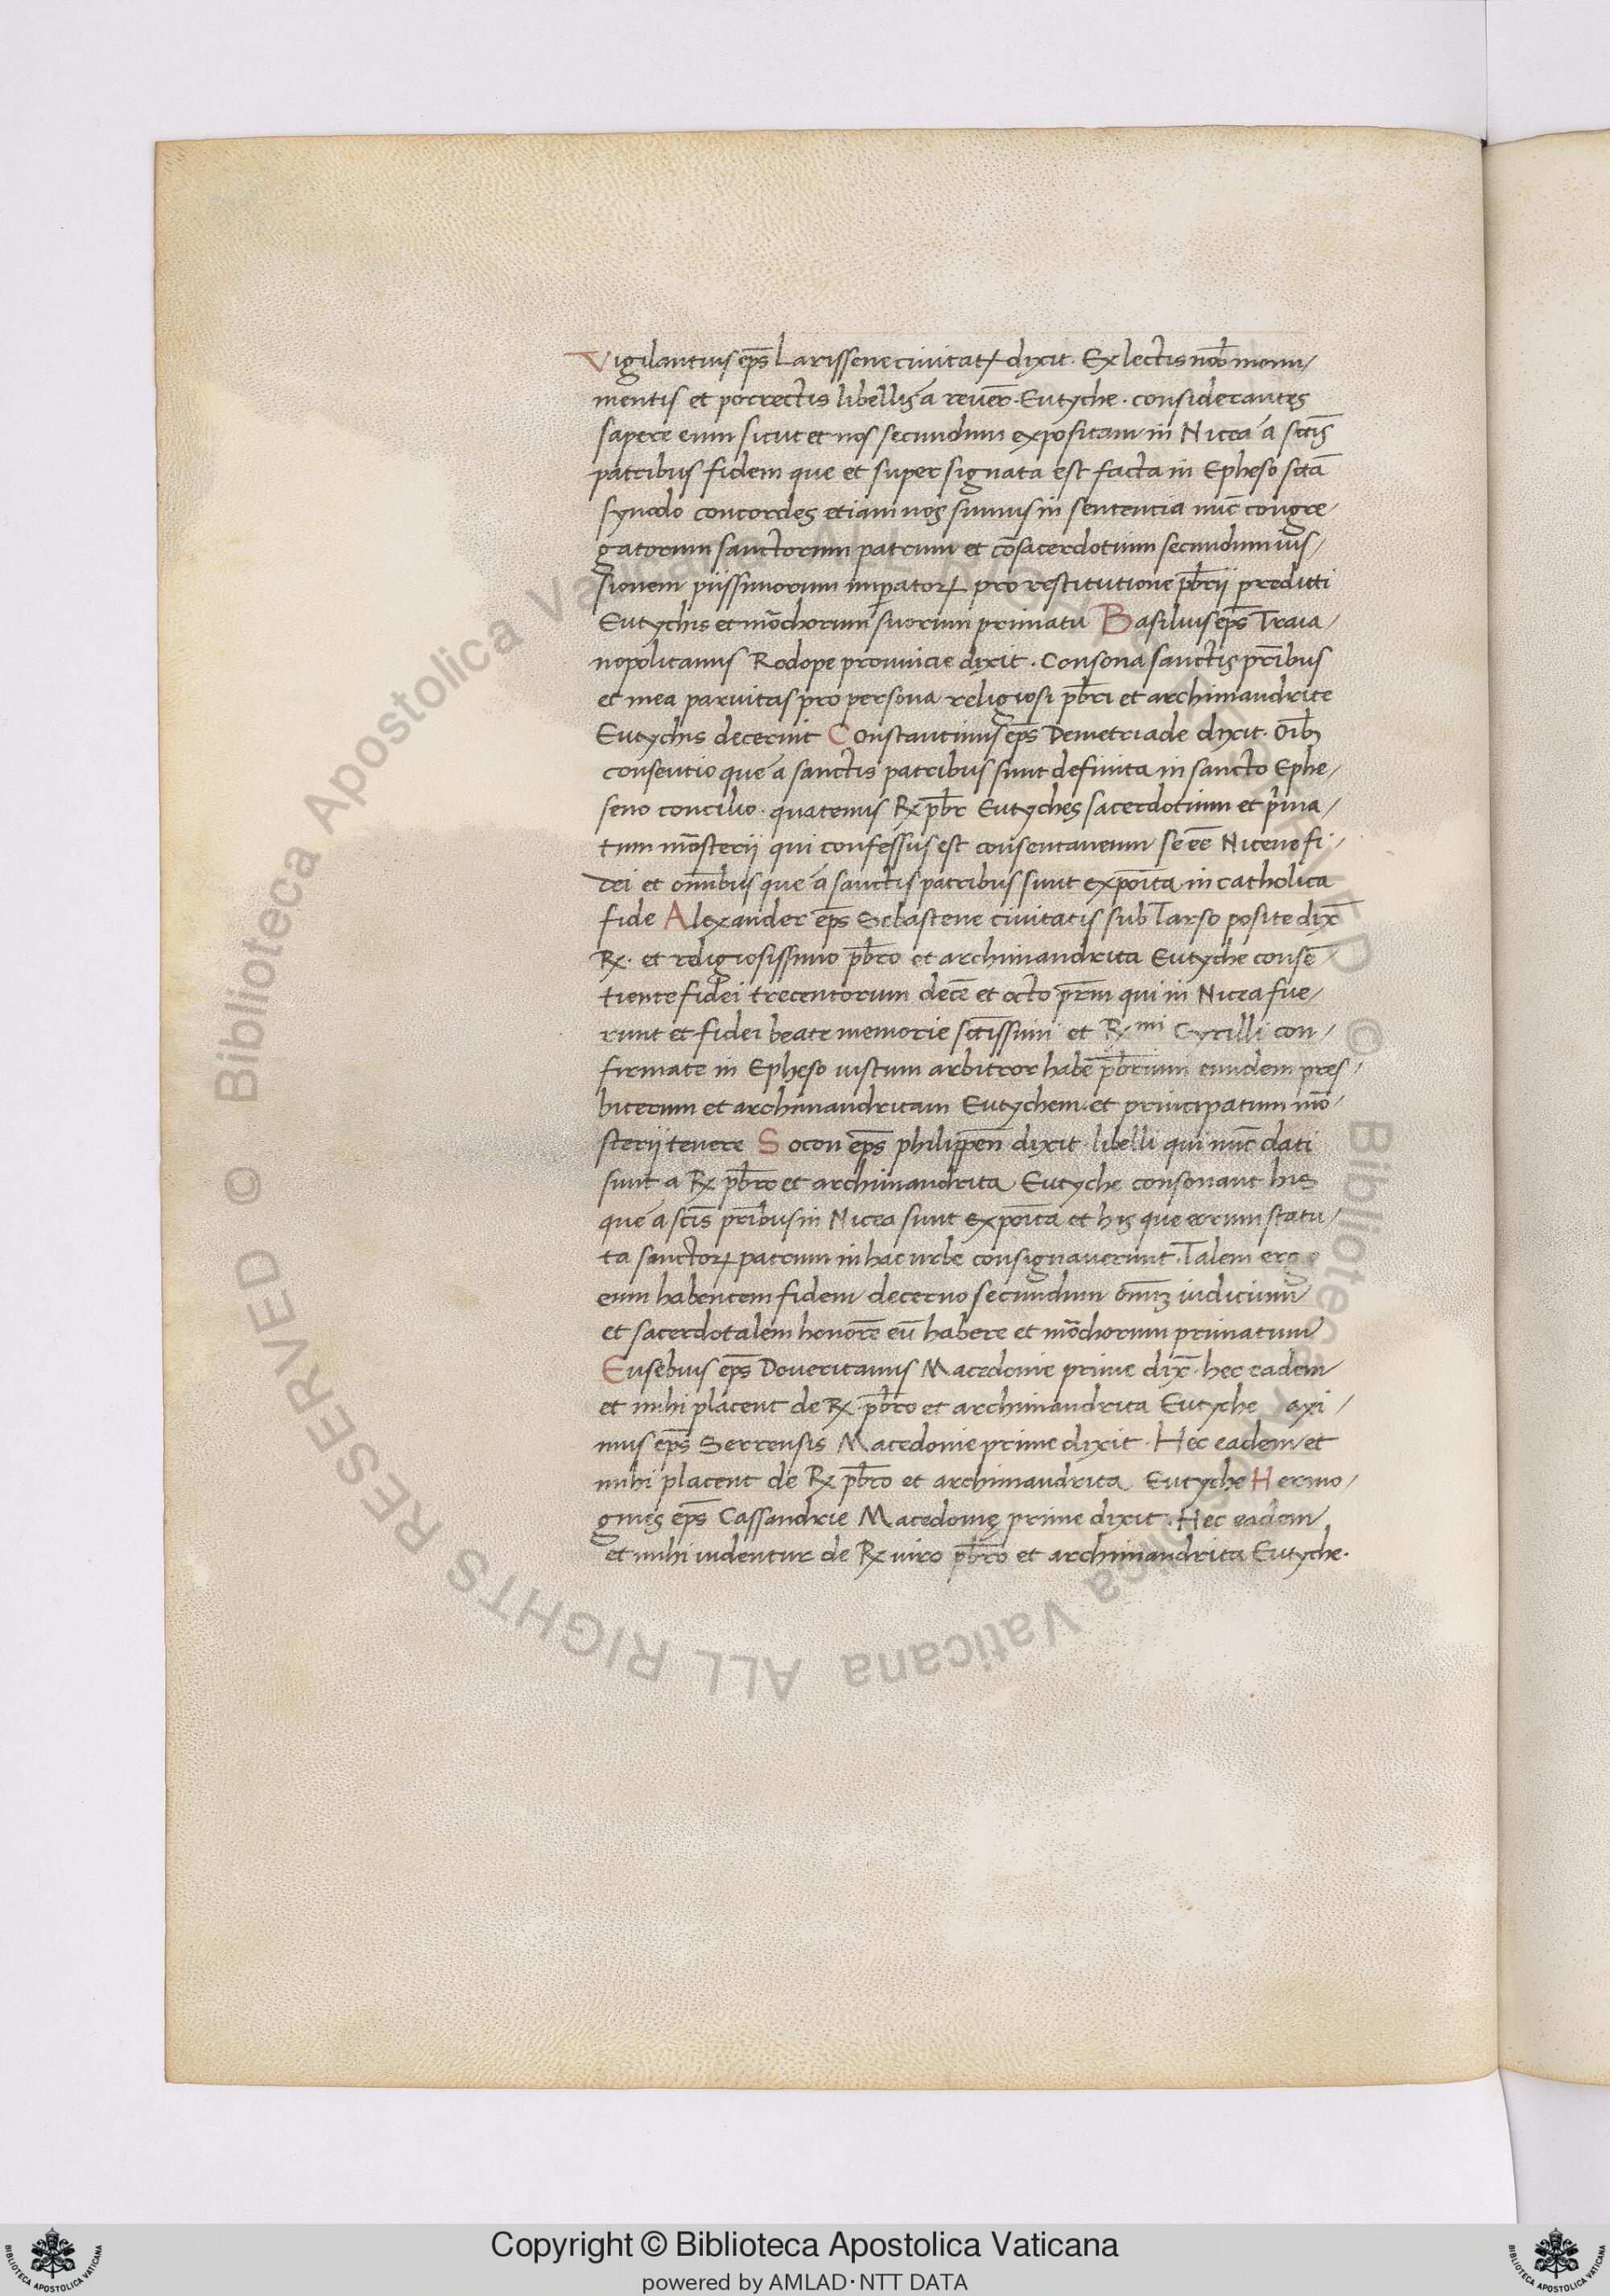 Vigilantius ep̄s Larissene ciuitatꝭ dixit. Ex lectis nob̄ monu/
mentis et porrectis libellis a reuer̄. Eutyche. considerantes
sapere eum sicut et nos secundum expositam in Nicea a sctīs
patribus fidem que et super signata est facta in Epheso sctā
synodo concordes etiam nos sumus in sententia nūc congre/
gatorum sanctorum patrum et cōsacerdotum secundum ius/
sionem piissimorum imꝑatorꝝ pro restitutione pb̄rii predicti
Eutychis et mōchorum suorum primatu Basilius ep̄s Traia/
nopolitanus Rodope prouincie dixit. Consona sanctis pr̄ibus
et mea paruitas pro persona religiosi pb̄ri et archimandrite
Eutychis decernit Constantinus ep̄s Demetriade dixit. Oīb;
consentio que a sanctis patribus sunt definita in sancto Ephe/
seno concilio. quatenus Rx pb̄r Eutyches sacerdotium et pͥma/
tum mōsterii qui confessus est consentaneum se eē Nicene fi/
dei et omībus que a sanctis patribus sunt expoīta in catholica
fide Alexander ep̄s Sebastene ciuitatis sub Tarso posite dix̄
Rx. et religiosissimo pb̄ro et archimandrita Eutyche consē
tiente fidei trecentorum decē et octo pr̄m qui in Nicea fue/
runt et fidei beate memorie sctīssimi et Rx mi Cyrilli con/
firmate in Epheso iustum arbitror habē pb̄rium eundem pres/
biterum et archimandritam Eutychem et principatum mō/
sterii tenere Socon ep̄s philippen̄ dixit libelli qui nūc dati
sunt a Rx pb̄ro et archimandrita Eutyche consonant his
que a sctīs pr̄ibus in Nicea sunt expoīta et his que eorum statu/
ta sanctorꝝ patrum in hac urbe consignauerunt. Talem ergo
eum habentem fidem decerno secundum omīuꝫ iudicium
et sacerdotalem honorē eū habere et mōchorum primatum
Eusebius ep̄s Doueritanus Macedonie prime dix̄. hec eadem
et mihi placent de Rx pb̄ro et archimandrita Eutyche axi/
mus ep̄s Serrensis Macedonie prime dixit. Hec eadem et
mihi placent de Rx pb̄ro et archimandrita Eutyche Hermo/
gines ep̄s Cassandrie Macedonię prime dixit. Hec eadem
et mihi uidentur de Rx uiro pb̄ro et archimandrita Eutyche.
© Biblioteca Apostolica Vaticana ALL RIGHTS RESERVED © Biblioteca Apostolica Vaticana ALL RIGHTS RESERVED
Copyright © Biblioteca Apostolica Vaticana
powered by AMLAD·NTT DATA
BIBLIOTECA APOSTOLICA VATICANA
BIBLIOTECA APOSTOLICA VATICANA